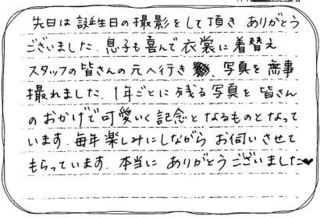 先日は誕生日の撮影をして頂き ありがとう
ございました、息子も喜んで衣裳に着替え
スタッフの皆さんの元へ行き 写真を無事
撮れました。1年ごとに残る写真を皆さん
のおかげで可愛いく記念となるものとなって
います。毎年楽しみにしながらお伺いさせて
もらっています。本当に ありがとうございました♥